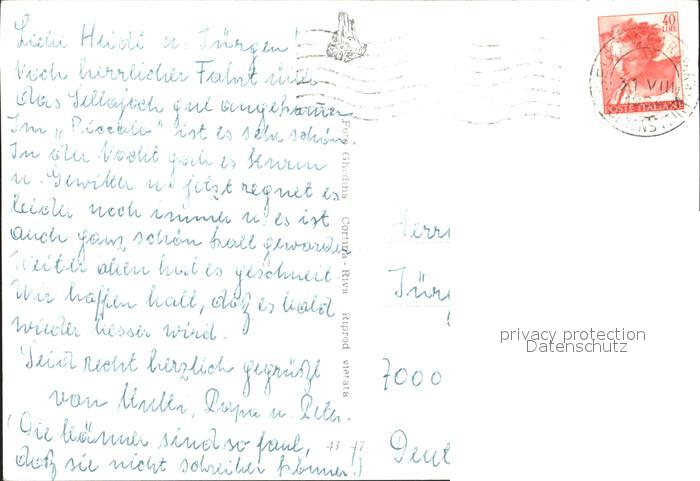 Liebe Heidi u. Jürgen!
Nach herrlicher Fahrt über
das Sellajoch gut angekommen.
Im „Piccolo" ist es sehr schön.
In der Nacht gab es Sturm
u. Gewitter u. jetzt regnet es
leider noch immer u. es ist
auch ganz schön kalt geworden.
Weiter oben hat es geschneit
Wir hoffen halt, daß es bald
wieder besser wird.
Seid recht herzlich gegrüßt
von Mutti, Papa u. Peter.
(Die Männer sind so faul,
daß sie nicht schreiben können!)
Foto Ghedina Cortina - Riva Riprod vietata
43 47
40
LIRE
POSTE ITALIANE
VIII
Herrn
Jür
7000
Deut
privacy protection
Datenschutz